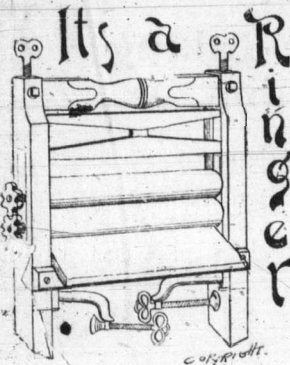 Its a
Ringer
COPYRIGHT.